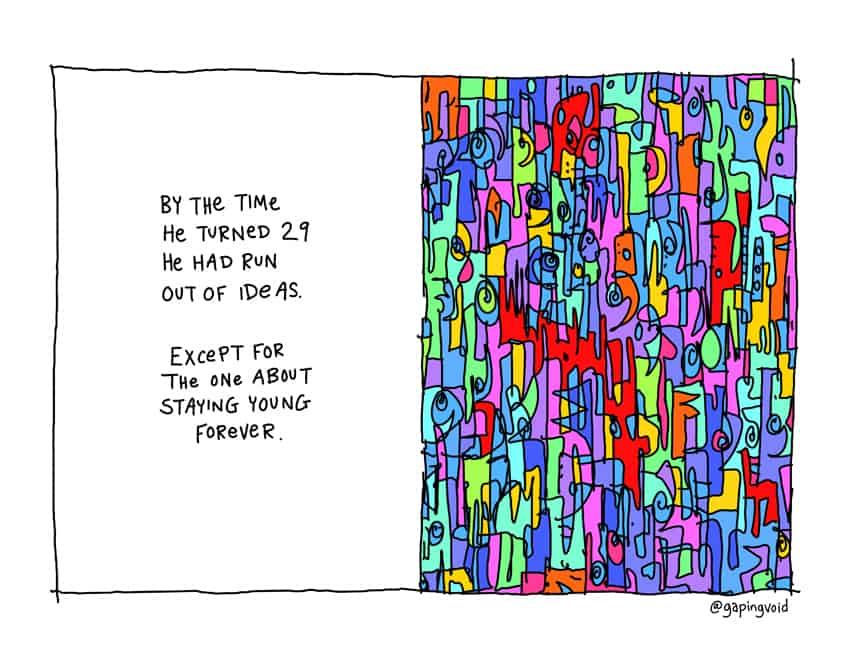 BY THE TIME
HE TURNED 29
HE HAD RUN
OUT OF IDEAS.
EXCEPT FOR
THE ONE ABOUT
STAYING YOUNG
FOREVER.
@gapingvoid